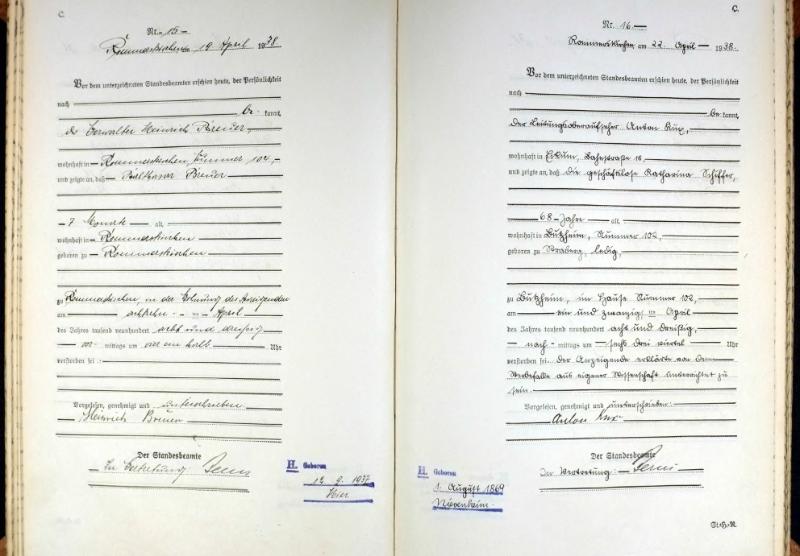 C.
Nr. 15
Rommerskirchen, 19 April 1938
Vor dem unterzeichneten Standesbeamten erschien heute, der Persönlichkeit
nach
be kannt,
der Verwalter Heinrich Breuer
wohnhaft in Rommerskirchen, Nummer 104,
und zeigte an, daß Balthasar Breuer
7 Monate alt,
wohnhaft in Rommerskirchen
geboren zu Rommerskirchen
zu Rommerskirchen, in der Wohnung des Anzeigenden
am achtzehn April
des Jahres tausend neunhundert acht und dreißig
vor mittags um halb Uhr
verstorben sei.
Vorgelesen, genehmigt und unterschrieben
Heinrich Breuer
Der Standesbeamte
In Vertretung
H. Geboren
12. 9. 1937
Hier
C.
Nr. 16
Rommerskirchen, am 22. April 1938.
Vor dem unterzeichneten Standesbeamten erschien heute, der Persönlichkeit
nach
be kannt,
der Leitungsoberaufseher Anton Kux,
wohnhaft in Eckum, Bahnstraße 18
und zeigte an, daß die geschäftslose Katharina Schiffer,
68 Jahre alt,
wohnhaft in Butzheim, Nummer 102,
geboren zu Straberg, ledig,
zu Butzheim, im Hause Nummer 102,
am ein und zwanzig ten April
des Jahres tausend neunhundert acht und dreißig,
nach mittags um sechs drei viertel Uhr
verstorben sei. Der Anzeigende erklärte von dem
Sterbefalle aus eigener Wissenschaft unterrichtet zu
sein.
Vorgelesen, genehmigt und unterschrieben
Anton Kux
Der Standesbeamte
In Vertretung
H. Geboren
1. August 1869
Nievenheim
St.H.R.